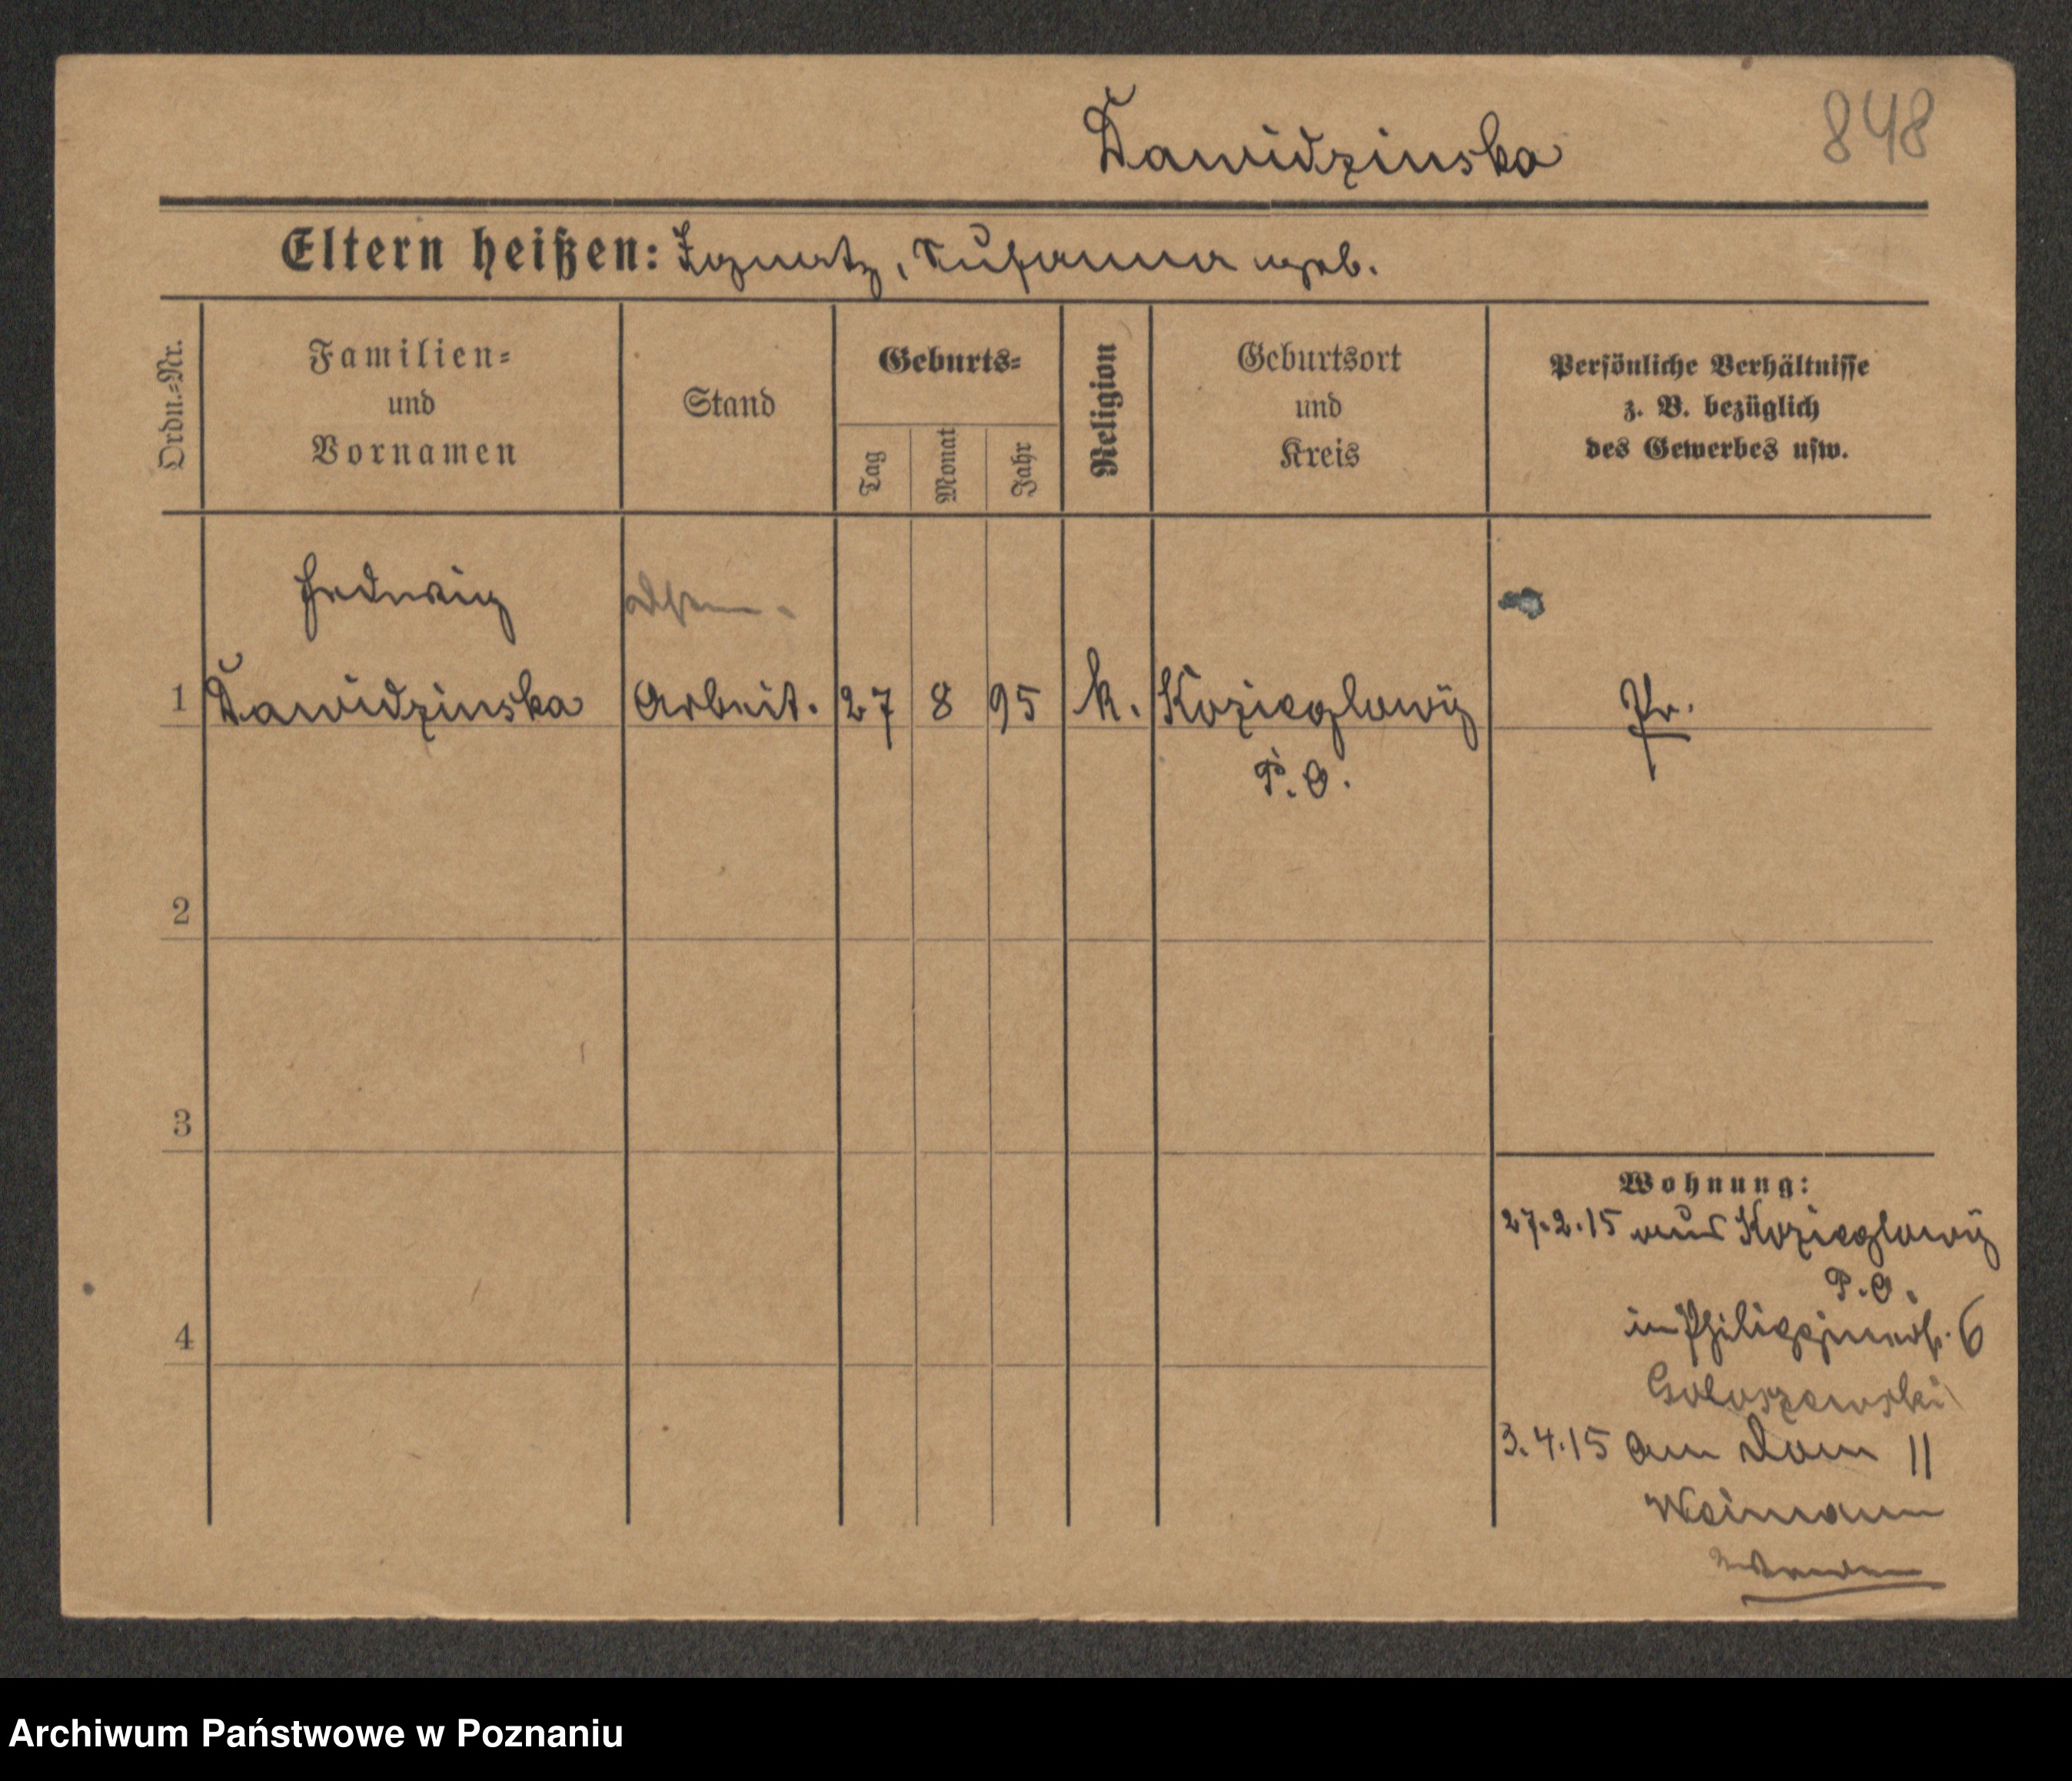 Dawidzinska
848
Eltern heißen: Ignatz, Susanna geb.
Ordn.=Nr.
Familien=
und
Vornamen
Stand
Geburts=
Tag
Monat
Jahr
Religion
Geburtsort
und
Kreis
Persönliche Verhältnisse
z. B. bezüglich
des Gewerbes usw.
Hedwig
1 Dawidzinska Arbeit. 27 8 95 k. Kozieglowy Pr.
P. O.
2
3
4
Wohnung:
27.2.15 aus Kozieglowy
P. O.
in 6
3.4.15 Am Dom 11
Weimann
Archiwum Państwowe w Poznaniu